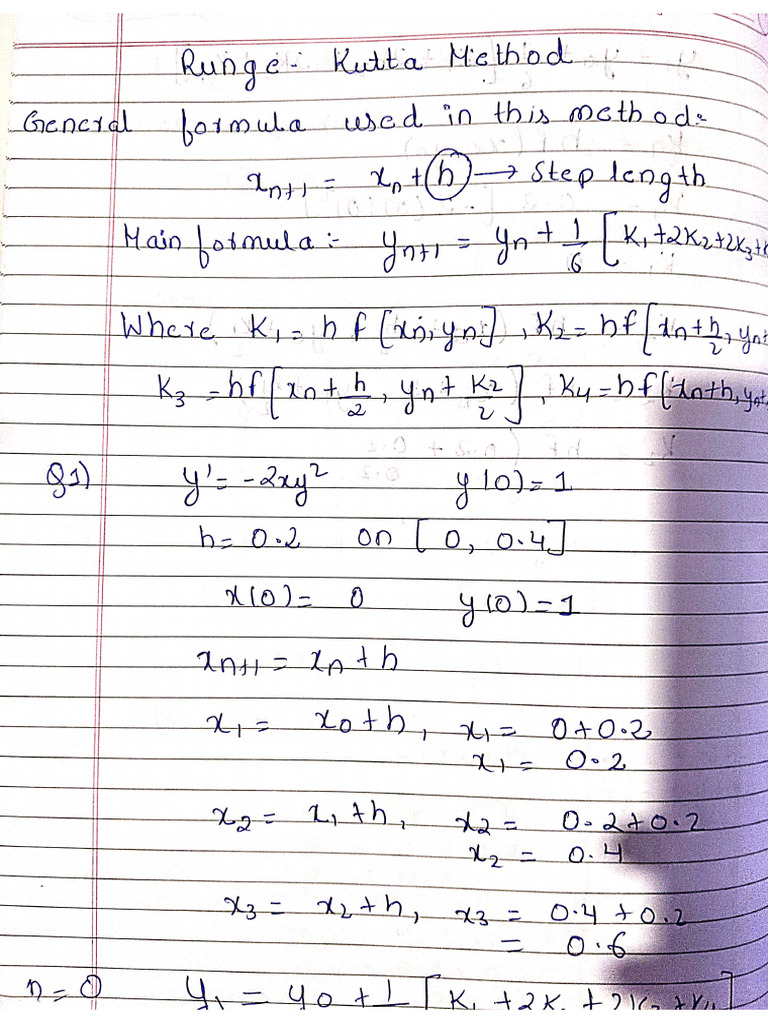 Runge- Kutta Method
General formula used in this method:-
xn+1 = xn + h → Step length
Main formula:- yn+1 = yn + 1/6 [K1+2K2+2K3+
Where K1 = hf[xn, yn], K2 = hf[xn+h/2, yn+
K3 = hf[xn + h/2, yn + K2/2], K4 = hf[xn+h, yn+
Q1) y' = -2xy² y(0)=1
h= 0.2 on [0, 0.4]
x(0)= 0 y(0)=1
xn+1 = xn + h
x1 = x0+h, x1 = 0+0.2
x1 = 0.2
x2 = x1+h, x2 = 0.2+0.2
x2 = 0.4
x3 = x2+h, x3 = 0.4+0.2
= 0.6
n=0 y1 = y0 + 1 [K1 +2K2 +2K3 +K4]